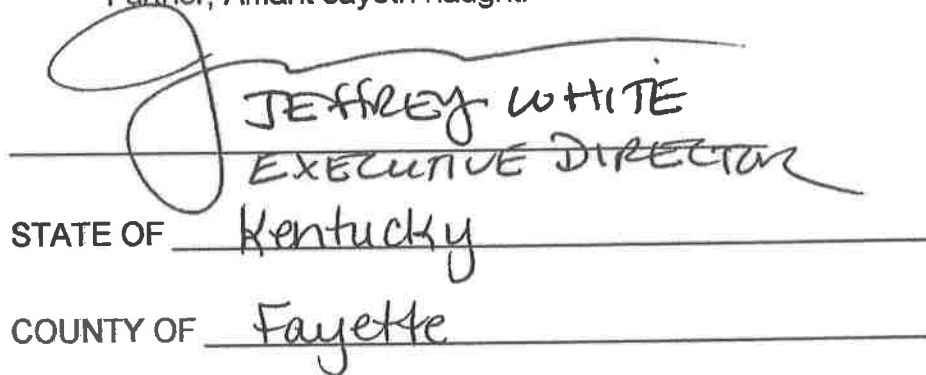 JEFFREY WHITE
EXECUTIVE DIRECTOR
STATE OF Kentucky
COUNTY OF Fayette